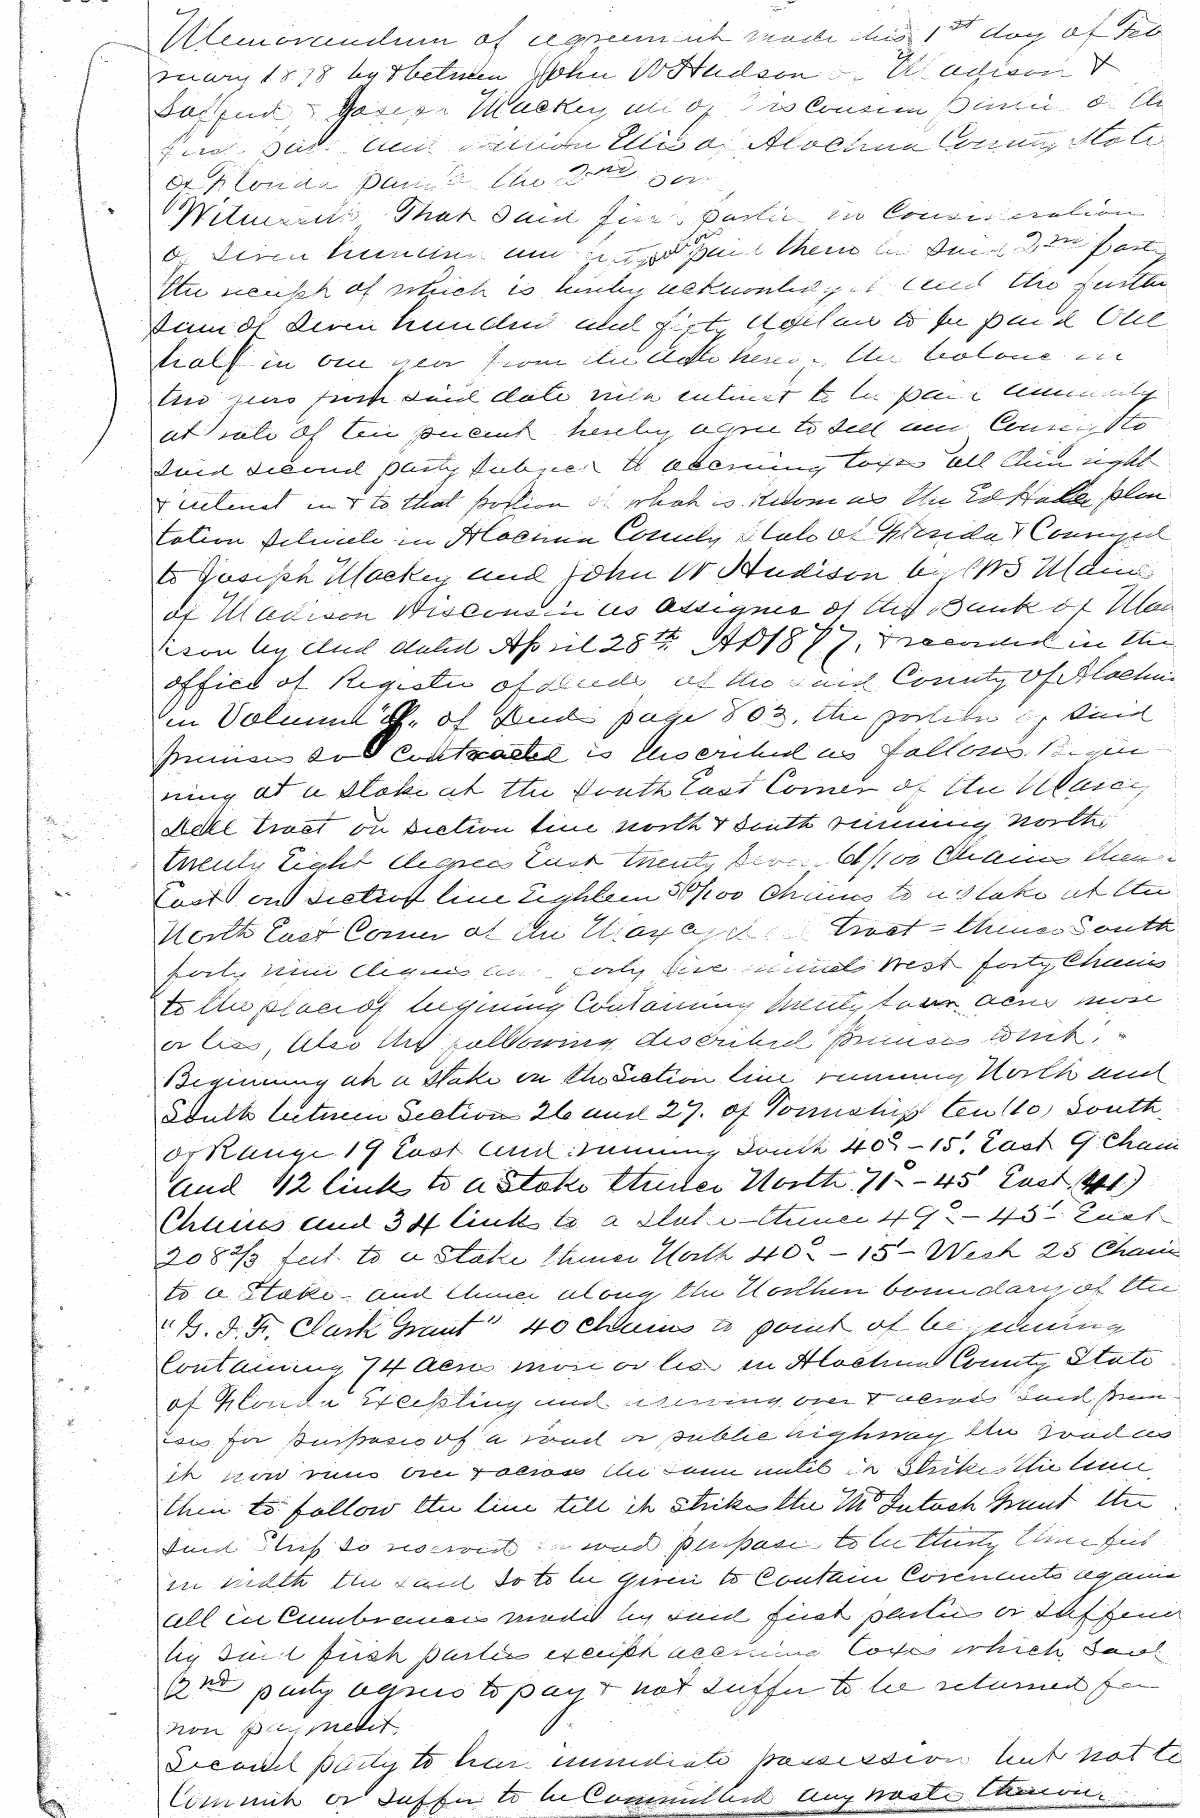 Memorandum of agreement made this 1st day of Feb
ruary 1878 by & between John W Hudson of Madison &
Joseph Mackey all of Wisconsin parties of the
first part and Ellis of Alachua County State
of Florida party of the 2nd part
Witnesseth, That said first parties in Consideration
of Seven hundred and paid them by said 2nd party
the receipt of which is hereby acknowledged and the further
sum of Seven hundred and fifty dollars to be paid One
half in one year from the date hereof, the balance in
two years from said date with interest to be paid annually
at rate of ten percent hereby agree to sell and Convey to
said second party subject to accruing taxes all their right
& interest in & to that portion of what is known as the Ed Haile plan
tation situate in Alachua County State of Florida & Conveyed
to Joseph Mackey and John W Hudison by
of Madison Wisconsin as assignee of the Bank of Mad
ison by deed dated April 28th AD 1877, & recorded in the
office of Register of deeds of the said County of Alachua
in Volume of Deeds page 803, the portion of said
premises so Contracted is described as follows. Begin
ning at a stake at the South East Corner of the
tract on section line north & south running north
twenty Eight degrees East twenty Seven 61/100 Chains thence
East on section line Eighteen 50/100 Chains to a stake at the
North East Corner of the tract - thence South
forty nine degrees and forty five minutes West forty Chains
to the place of begining Containing twenty four acres more
or less, Also the following described premises towit,
Beginning at a stake on the Section line running North and
South between Section 26 and 27. of Township ten (10) South
of Range 19 East and running South 40° - 15'. East 9 Chain
and 12 links to a Stake thence North 71° - 45' East (41)
Chains and 34 links to a stake - thence 49° - 45' East
208 2/3 feet to a stake thence North 40° - 15' - West 25 Chain
to a Stake - and thence along the Northern boundary of the
"G. I. F. Clark Grant" 40 Chains to point of beginning
Containing 74 acres more or less in Alachua County State
of Florida Excepting and reserving over & across said prem
ises for purposes of a road or public highway the road as
it now runs over & across the same until it strikes the line,
then to follow the line till it strikes the McIntosh Grant the
said Strip so reserved for road purpose to be thirty three feet
in width the said so to be given to Contain Covenants against
all incumbrances made by said first parties or suffered
by said first parties except accruing taxes which said
2nd party agrees to pay & not suffer to be returned for
non payment.
Second party to have immediate possession but not to
Commit or suffer to be Committed any waste thereon.